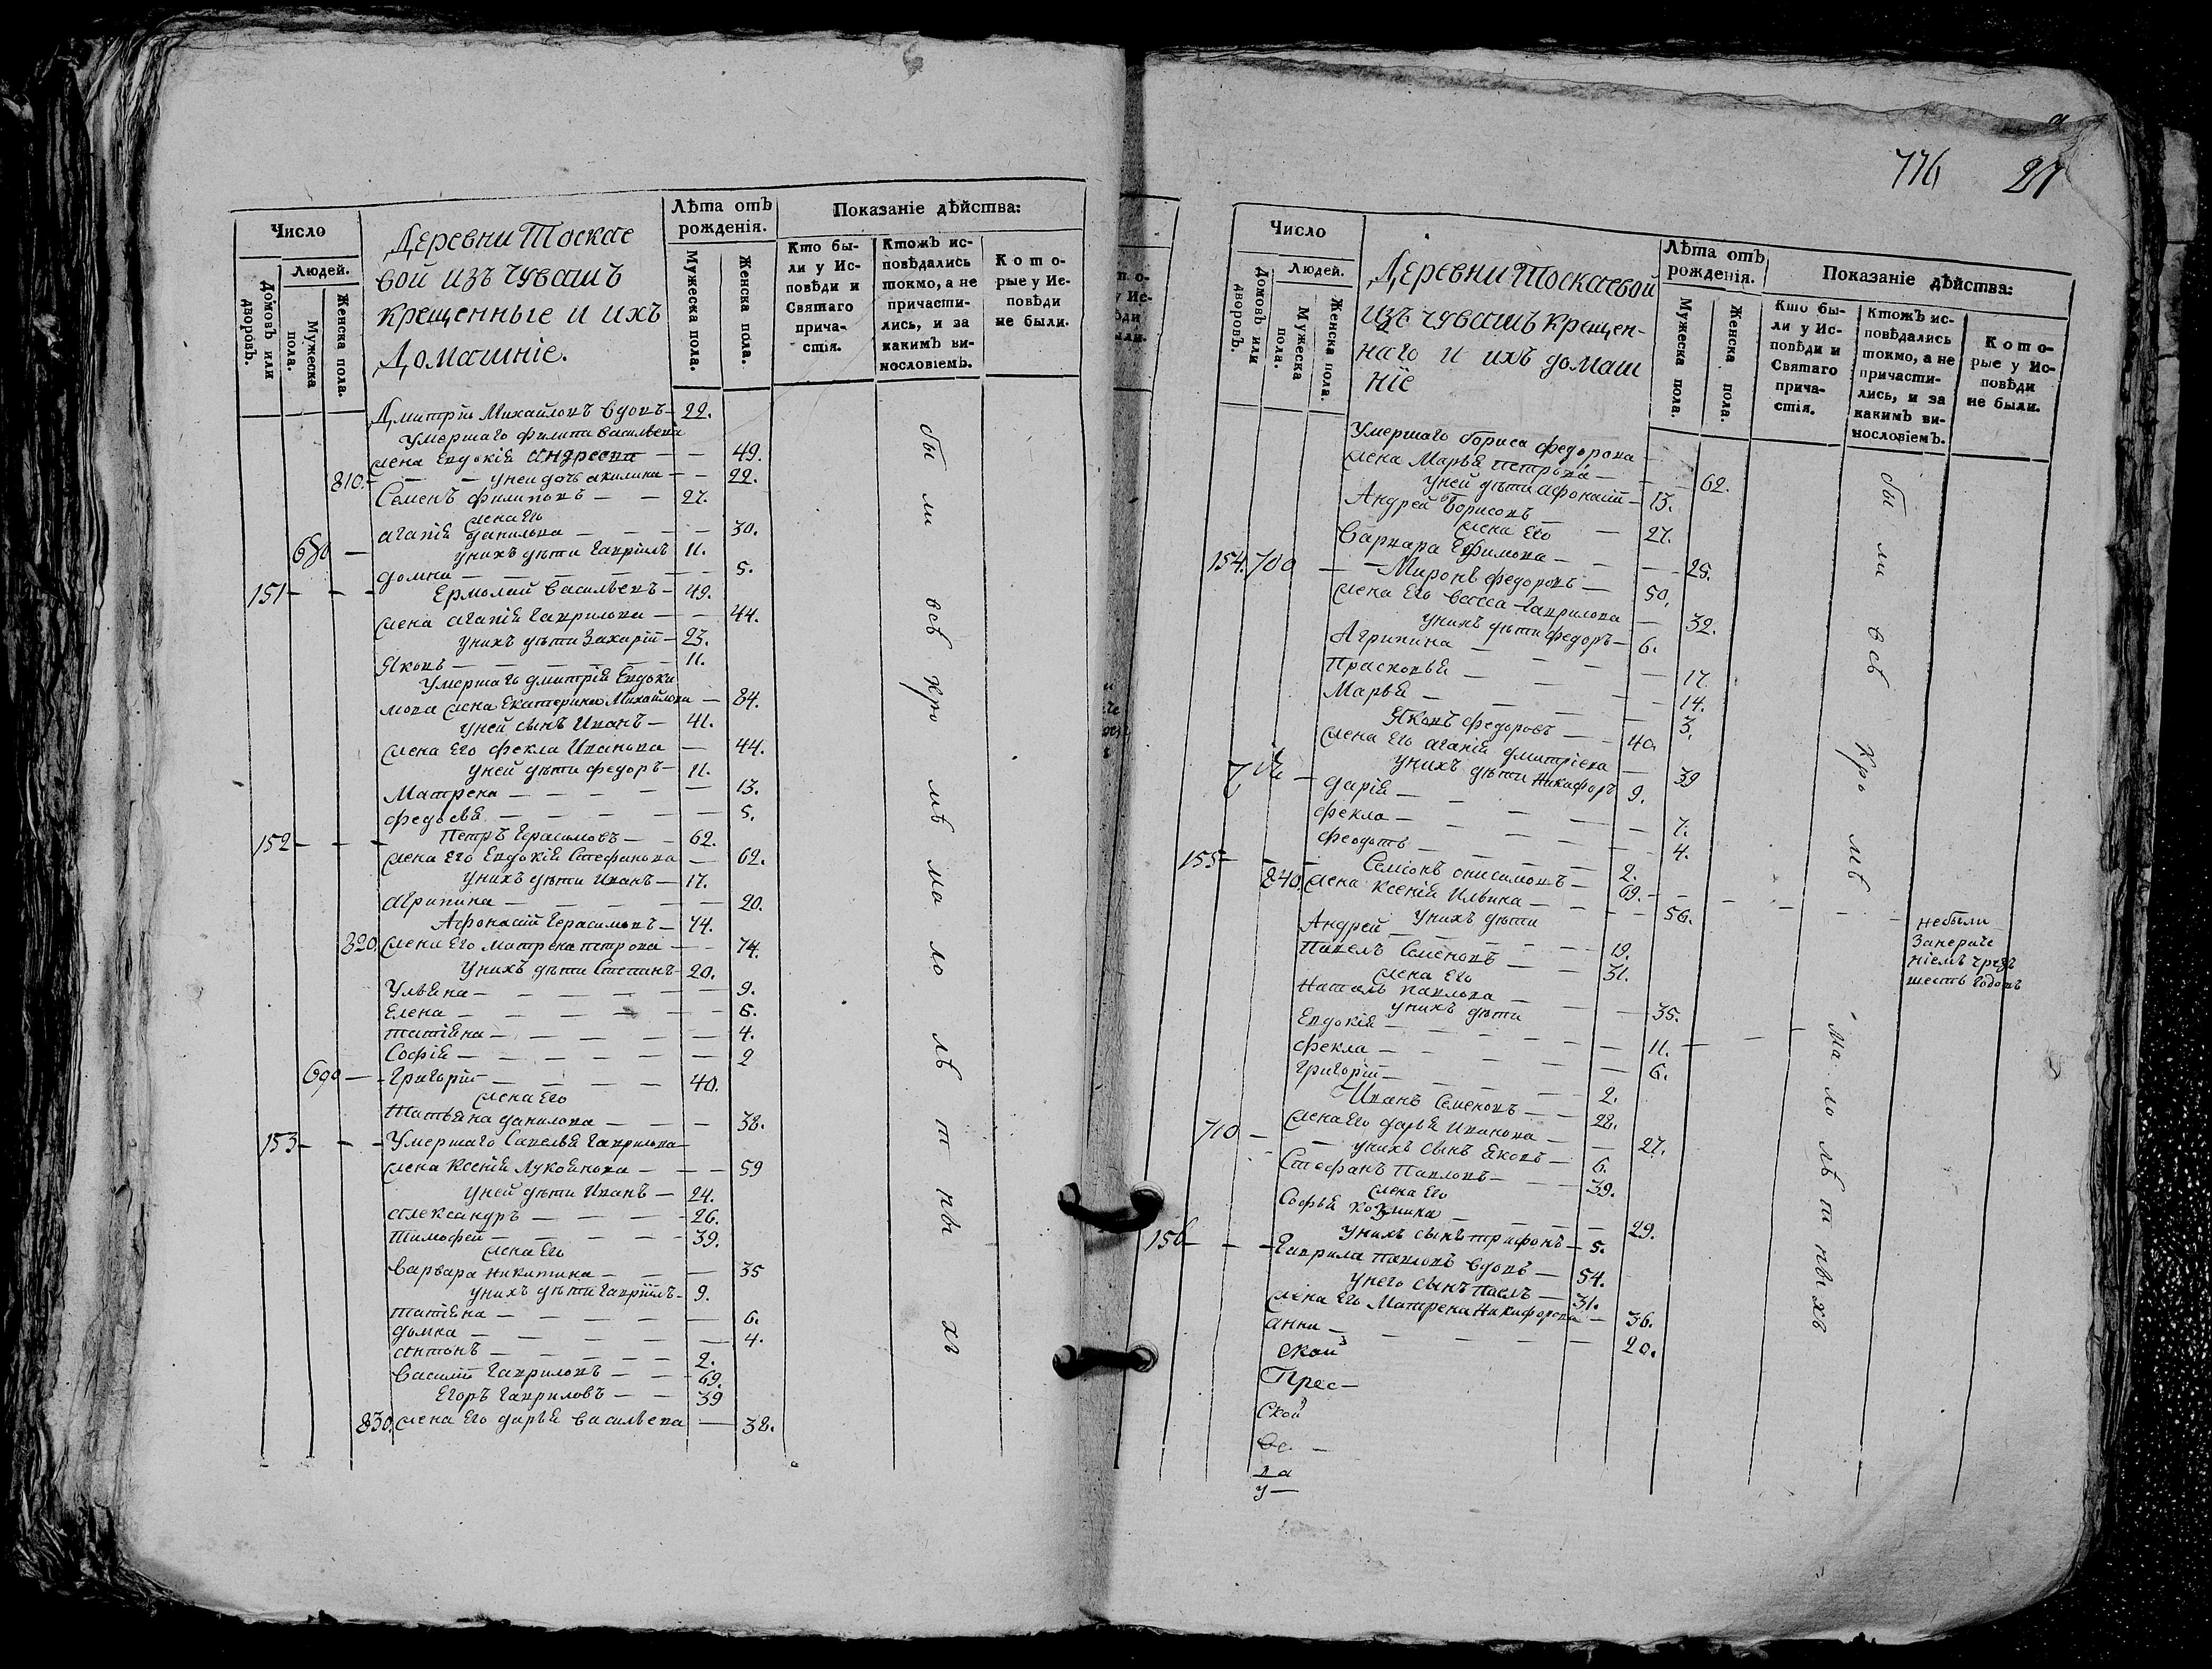 Число
Людей.
Домовъ или дворовъ.
Мужеска пола.
Женска пола.
Деревни Тоскае
вой изъ чувашъ
крещенные и ихъ
Домашніе.
Лѣта отъ рожденія.
Мужеска пола.
Женска пола.
Показаніе дѣйства:
Кто бы-
ли у Ис-
повѣди и
Святаго
прича-
стія.
Ктожъ ис-
повѣдались
токмо, а не
причасти-
лись, и за
какимъ ви-
нословіемъ.
Кото-
рые у Ис-
повѣди
не были.
Дмитрій Михайловъ вдовъ — 22.
Умершаго Филипа Васильева
жена Евдокія Андреева — — 49.
810. — — — уней дочь Акилина — — 22.
Семенъ Филиповъ — — 27.
жена Его
Агапія Данилова — — — — 30.
680 — унихъ дѣти Гавріилъ 11.
Домна — — — — — — 5.
151 — — — Ермолай Васильевъ — 49.
жена Агапія Гаврилова — — 44.
унихъ дѣти Захарій — 23.
Яковъ — — — — — 11.
Умершаго Дмитрія Евдоки
мова жена Екатерина Михайлова — 84.
уней сынъ Иванъ — 41.
жена Его Фекла Иванова — 44.
уней дѣти Федоръ — 11.
Матрена — — — — — 13.
Федосья — — — — — 5.
152 — — — Петръ Герасимовъ — — 62.
жена Его Евдокія Стефанова — 62.
унихъ дѣти Иванъ — 17.
Агрипина — — — — — 20.
Афонасій Герасимовъ — 74.
820. жена Его Матрена Петрова — — 74.
унихъ дѣти Степанъ — 20.
Ульяна — — — — — — 9.
Елена — — — — — — 6.
Татіяна — — — — — 4.
Софія — — — — — — 2
690 — — Григорій — — — — 40.
жена Его
Татьяна Данилова — — — 38.
153 — — — Умершаго Савелья Гаврилова —
жена Ксенія Лукоянова — — — 59
уней дѣти Иванъ — 24.
Александръ — — — — 26.
Тимофей — — — — — 39.
жена Его
Варвара Никитина — — — 35
унихъ дѣти Гавріилъ — 9.
Татіяна — — — — — 6.
Домна — — — — — — 4.
Антонъ — — — — — 2.
Василій Гавриловъ — — — 69.
Егоръ Гавриловъ — — 39
830. жена Его Дарья Васильева — 38.
бы ли всѣ кро мѣ ма ло лѣ т ны хъ
776 27
Число
Людей.
Домовъ или дворовъ.
Мужеска пола.
Женска пола.
Деревни Тоскаевой
изъ чувашъ крещен-
наго и ихъ домаш
ніе
Лѣта отъ рожденія.
Мужеска пола.
Женска пола.
Показаніе дѣйства:
Кто бы-
ли у Ис-
повѣди и
Святаго
прича-
стія.
Ктожъ ис-
повѣдались
токмо, а не
причасти-
лись, и за
какимъ ви-
нословіемъ.
Кото-
рые у Ис-
повѣди
не были.
Умершаго Бориса Федорова —
жена Марья Петрова — — — 62.
уней дѣти Афонасій — 13.
Андрей Борисовъ — — 27.
жена Его
Варвара Ефимова — — — 25.
154. 700 — — Миронъ Федоровъ — 50.
жена Его Васса Гаврилова — 32.
унихъ дѣти Федоръ — 6.
Агрипина — — — — 17.
Прасковья — — — — 14.
Марья — — — — — 3.
Яковъ Федоровъ — — 40.
жена Его Агапія Дмитріева — 39
унихъ дѣти Никифоръ 9.
Дарія — — — — — 7.
Фекла — — — — — 4.
Феодотъ — — — — 2.
155 — — — Семіонъ Онисимовъ — 69. — —
840. жена Ксенія Ильина — — — 56.
унихъ дѣти
Андрей — — — — — 19.
Павелъ Семеновъ — — 31.
жена Его
Наталь Павлова — — — 35.
унихъ дѣти
Евдокія — — — — — 11. — —
Фекла — — — — — 6.
Григорій — — — — 2.
Иванъ Семеновъ — — 28.
жена Его Дарья Иванова — — 27.
710 — — унихъ сынъ Яковъ — 6.
Стефанъ Павловъ — — — 39.
жена Его
Софья Козмина — — — — 29.
унихъ сынъ Трифонъ — 5.
156 — — — Гаврила Павловъ вдовъ — 54.
унего сынъ Павелъ — 31.
жена Его Матрена Никифорова — 36.
Анна — — — — — 20.
ской
Прес —
ской
бы ли всѣ кро мѣ ма ло лѣ т ны хъ
небыли
Занераче
ніемъ чрезъ
шесть годовъ